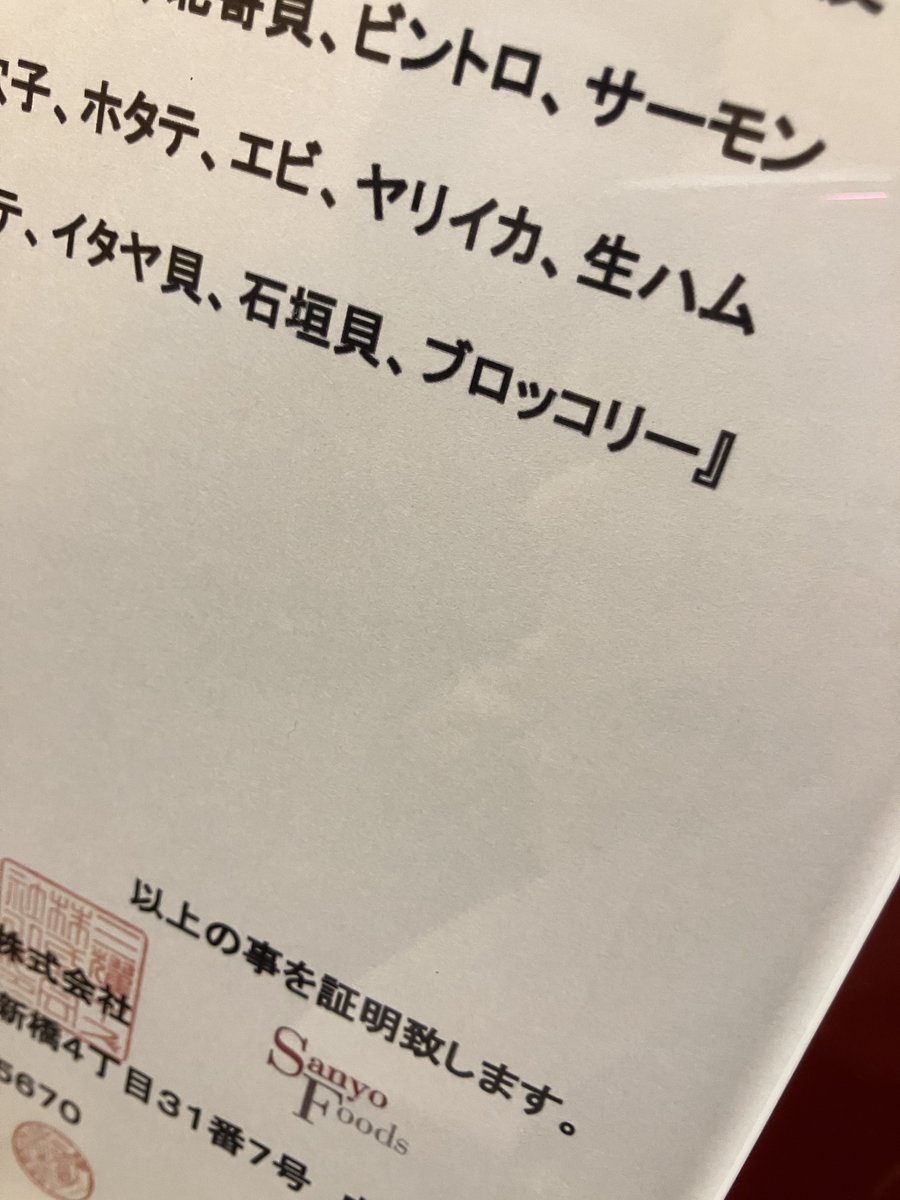 北寄貝、ビントロ、サーモン
穴子、ホタテ、エビ、ヤリイカ、生ハム
テ、イタヤ貝、石垣貝、ブロッコリー』
以上の事を証明致します。
株式会社
新橋4丁目31番7号
5670
Sanyo
Foods